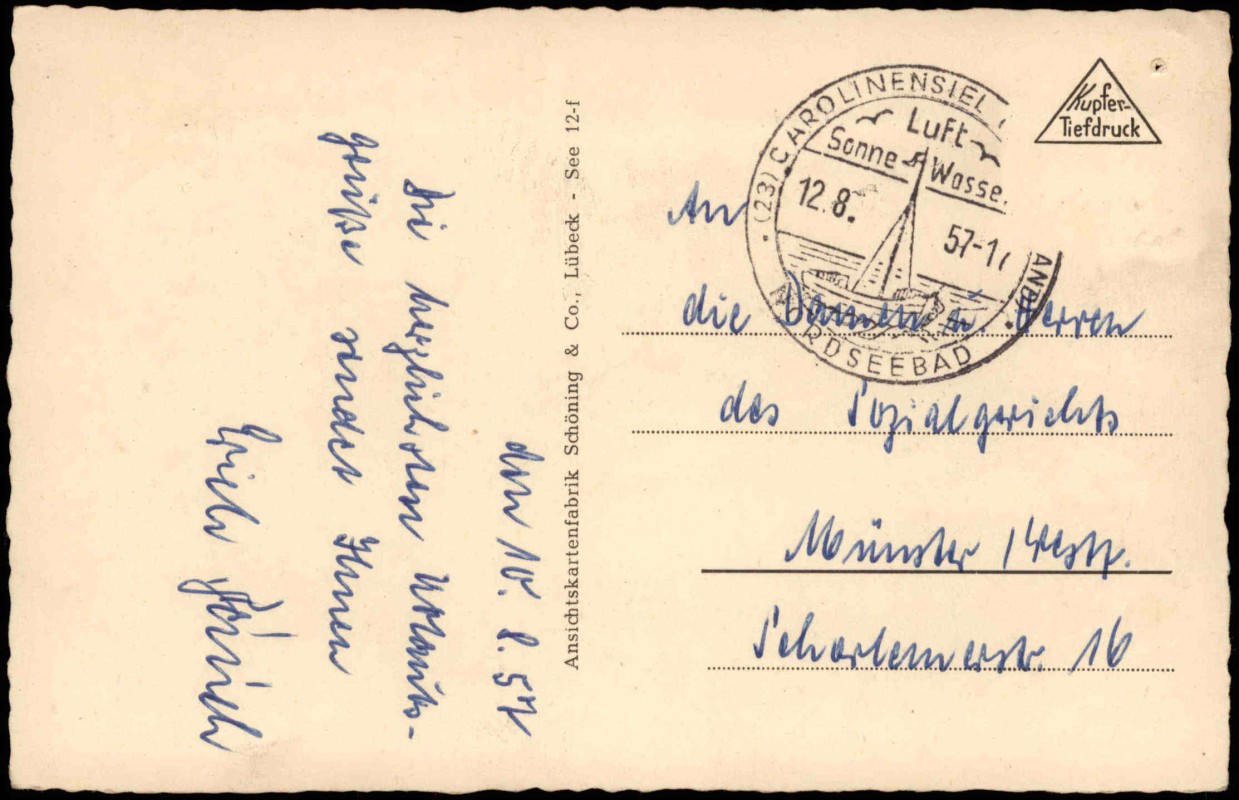 den 10. 8. 57
Die herzlichsten Urlaubs-
grüße sendet Ihnen
Ansichtskartenfabrik Schöning & Co., Lübeck - See 12-f
(23) CAROLINENSIEL
Luft
Sonne Wasse
12.8. 57-1
NORDSEEBAD
Kupfer-
Tiefdruck
An
die Damen u. Herren
des Sozialgerichts
Münster / Westf.
Schorlemerstr. 16